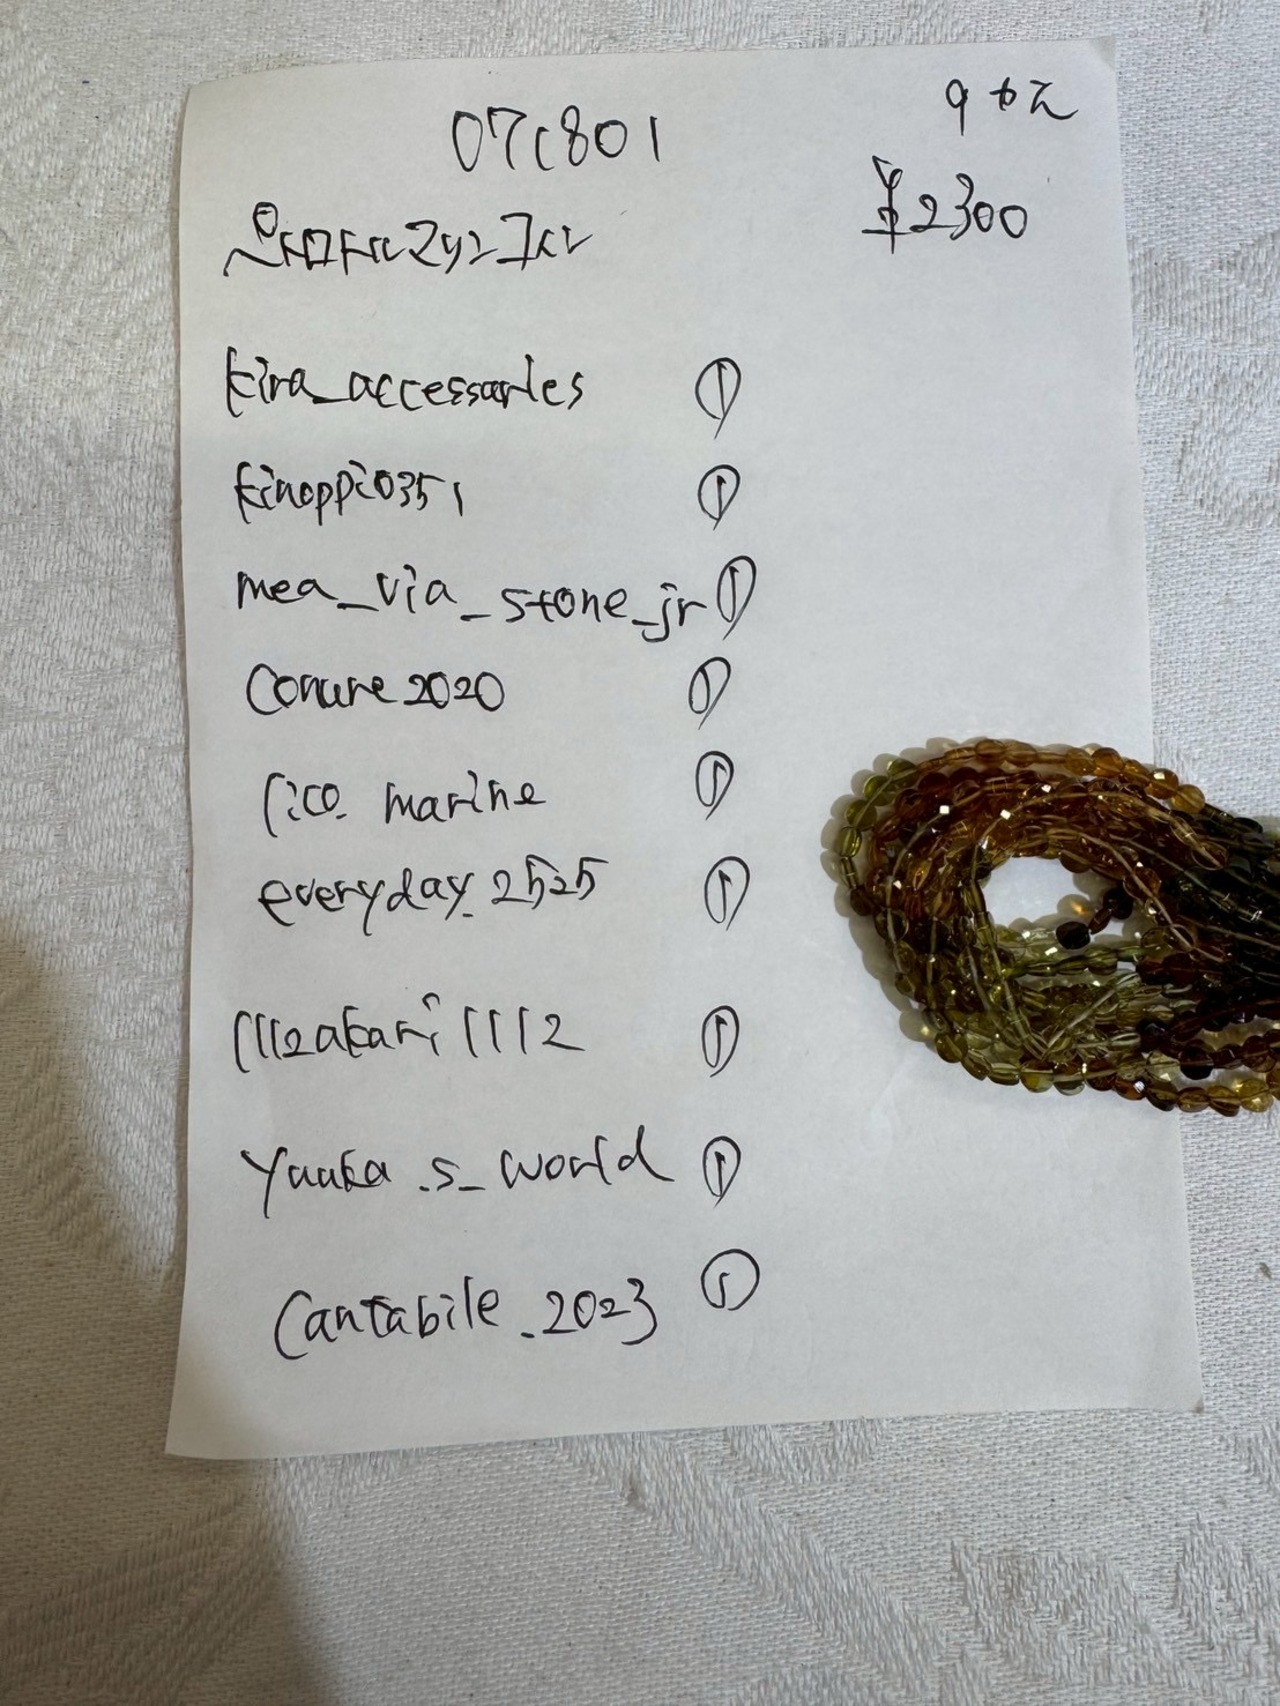 07C801
¥2300
kira_accessaries ①
kinoppi0351 ①
mea_via_stone_jr ①
Conure2020 ①
rico. marine ①
everyday.2525 ①
1112akari1112 ①
Yuuka.s_world ①
Cantabile_2023 ①